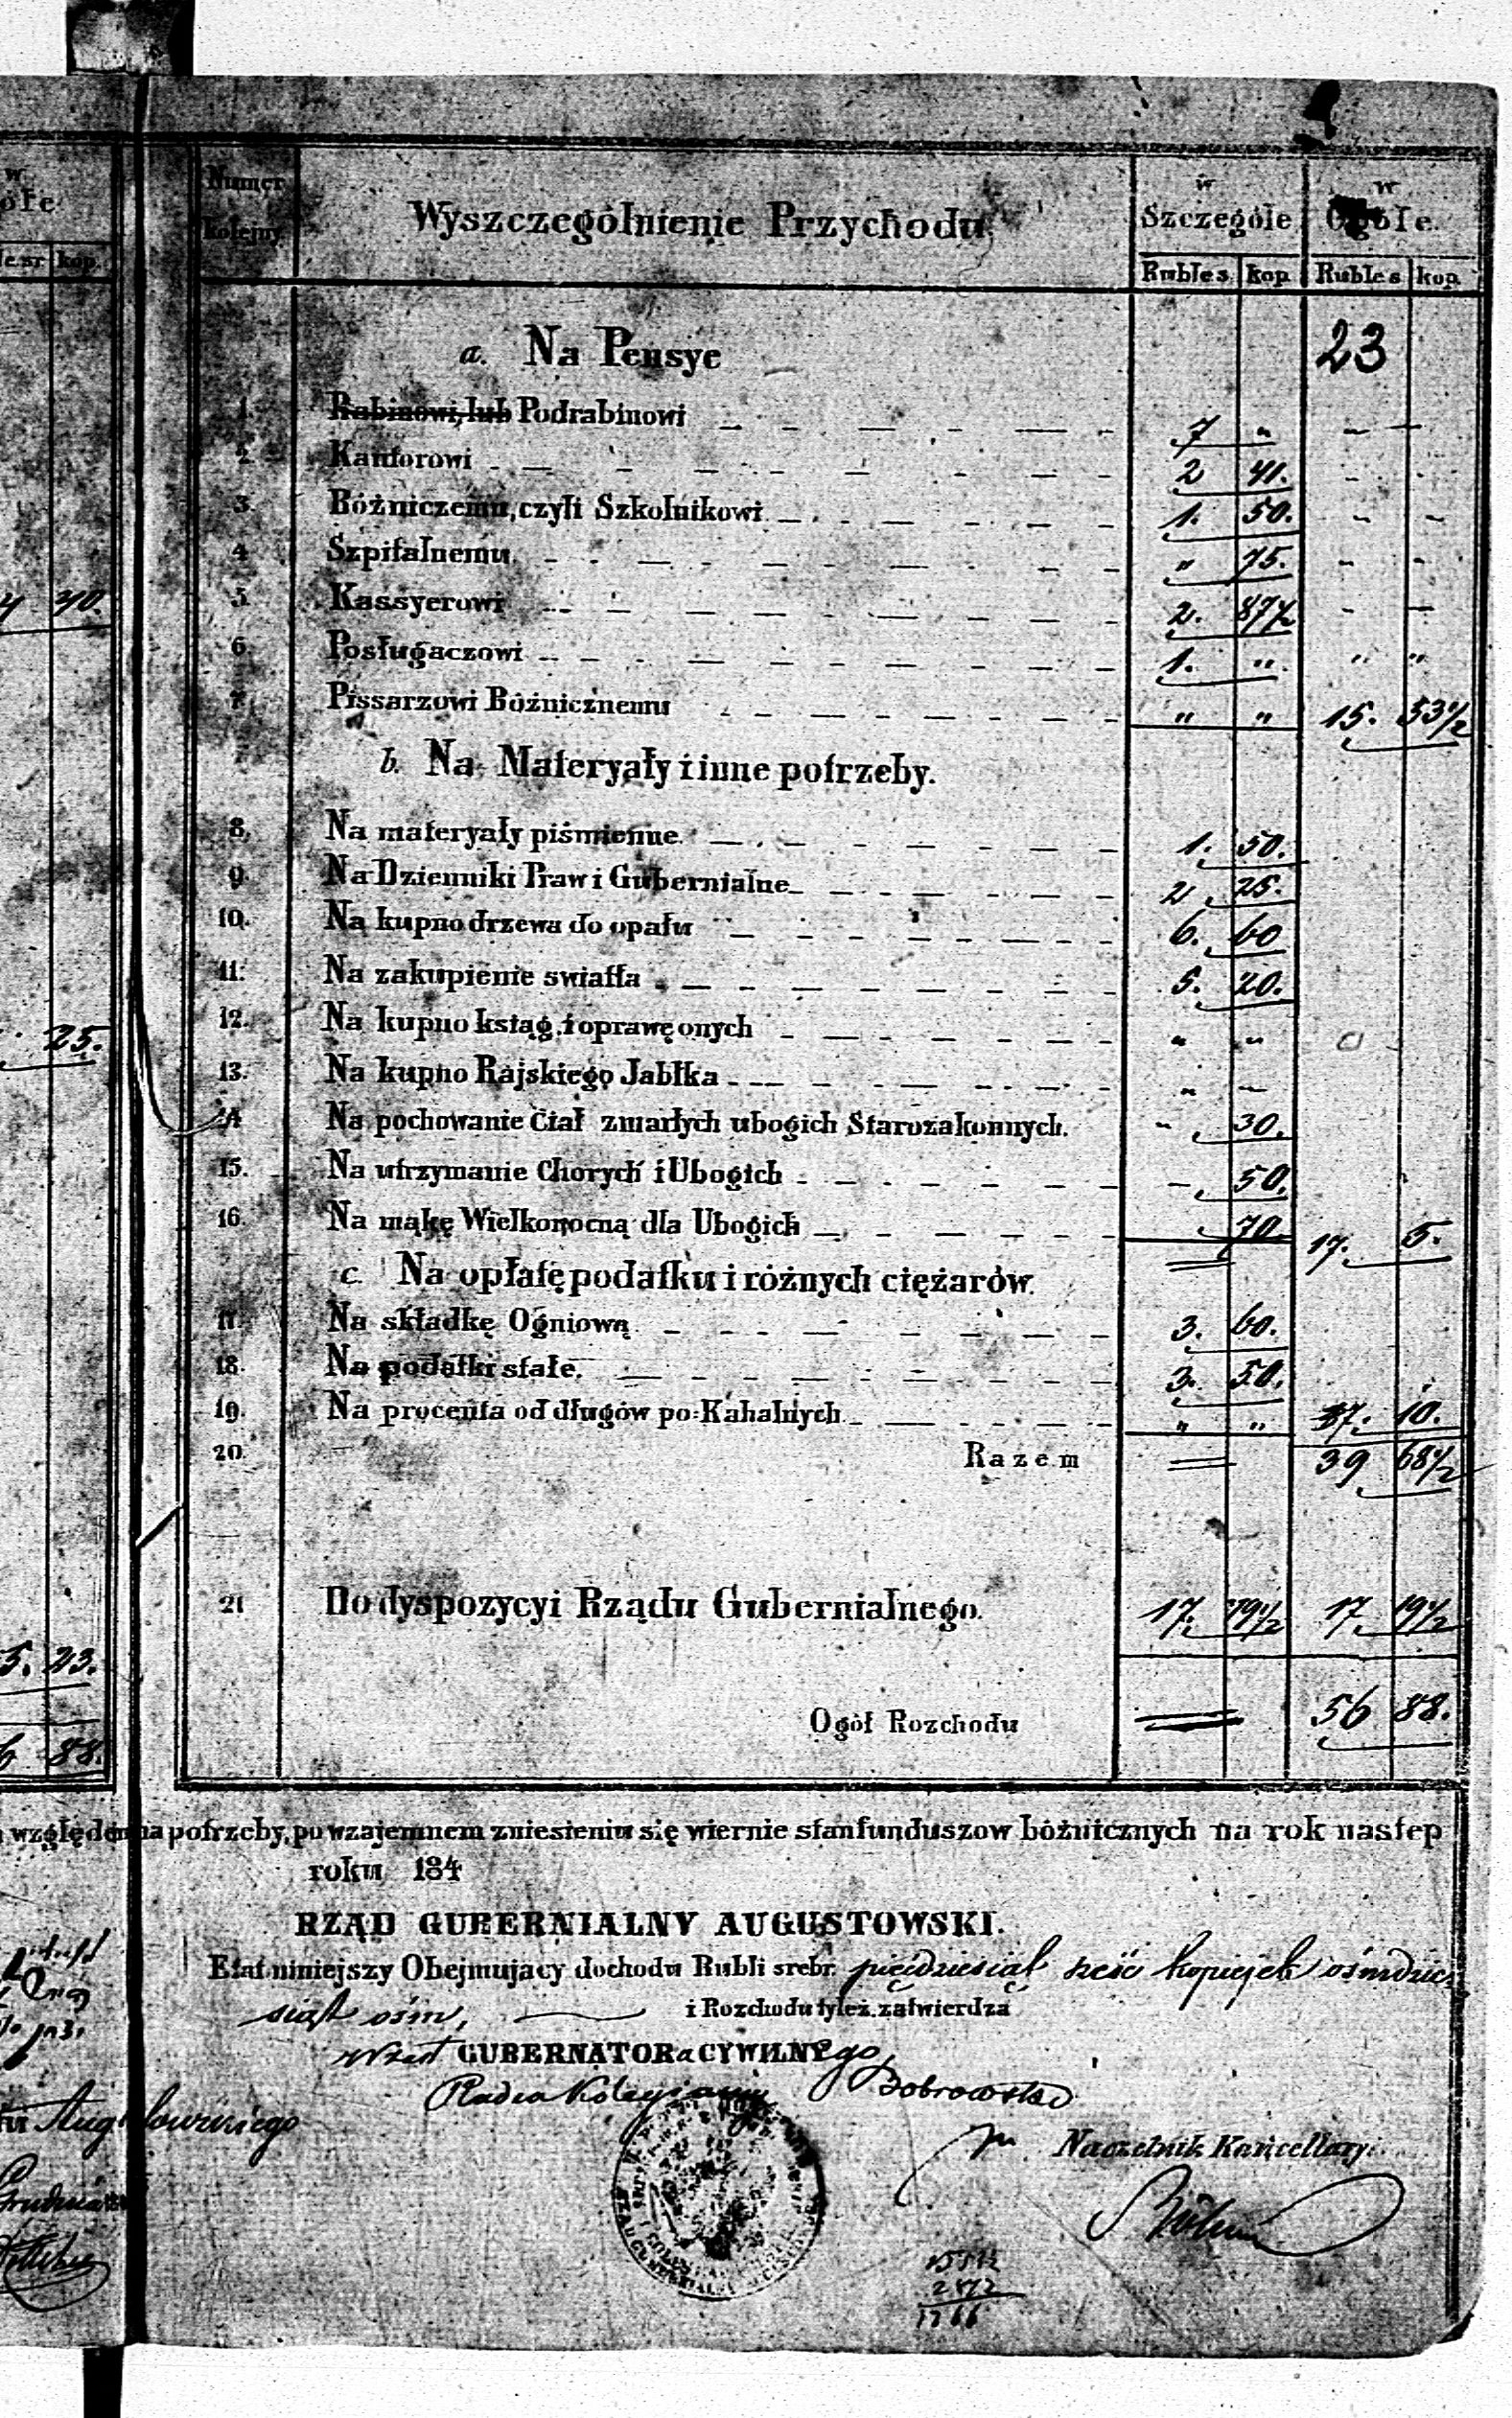 w
w
w
Numer
kolejny
Wyszczególnienie Przychodu
Szczególe
Ogóle.
kop.
Rubles
kop
Rubles
kop
a. Na Pensye
23
1. Rabinowi, lub Podrabinowi 7 „
2. Kantorowi 2 41.
3. Bóżniczemu, czyli Szkolnikowi 1. 50.
4 Szpitalnemu „ 75.
5. Kassyerowi 2. 87½
40.
6. Posługaczowi 1. „ „ „
7. Pissarzowi Bóżnicznemu „ „ 15. 53½
b. Na Materyały i inne potrzeby.
8. Na materyały piśmienne. 1. 50.
9. Na Dzienniki Praw i Gubernialne 2 25.
10. Na kupno drzewa do opału 6. 60
11. Na zakupienie swiatła 5. 20.
12. Na kupno ksiąg, i oprawę onych „ „
25.
13. Na kupno Rajskiego Jabłka „ –
14 Na pochowanie Ciał zmarłych ubogich Starozakonnych. 30.
15. Na utrzymanie Chorych i Ubogich 50.
16. Na mąkę Wielkonocną dla Ubogich 70. 17. 5.
c. Na opłatę podatku i różnych ciężarów.
17. Na składkę Ogniową 3. 60.
18. Na podatki stałe. 3. 50.
19. Na procenta od długów po-Kahalnych „ „ 7. 10.
20. Razem 39 68½
21 Do dyspozycyi Rządu Gubernialnego. 17. 19½ 17 19½
5. 23.
Ogół Rozchodu 56 88.
6 88.
względem na potrzeby, po wzajemnem zniesieniu się wiernie stan funduszow bóżnicznych na rok nastep
roku 184
RZĄD GUBERNIALNY AUGUSTOWSKI.
Etat niniejszy Obejmujący dochodu Rubli srebr. pięćdziesiąt sześć kopiejek ośmdzie
siąt ośm, i Rozchodu tyleż zatwierdza
GUBERNATORa CYWILNEgo,
Radca Kolegialny Dobrowolski
Augustowskiego
Naczelnik Kancellaryi
Grudnia
1553½
1766